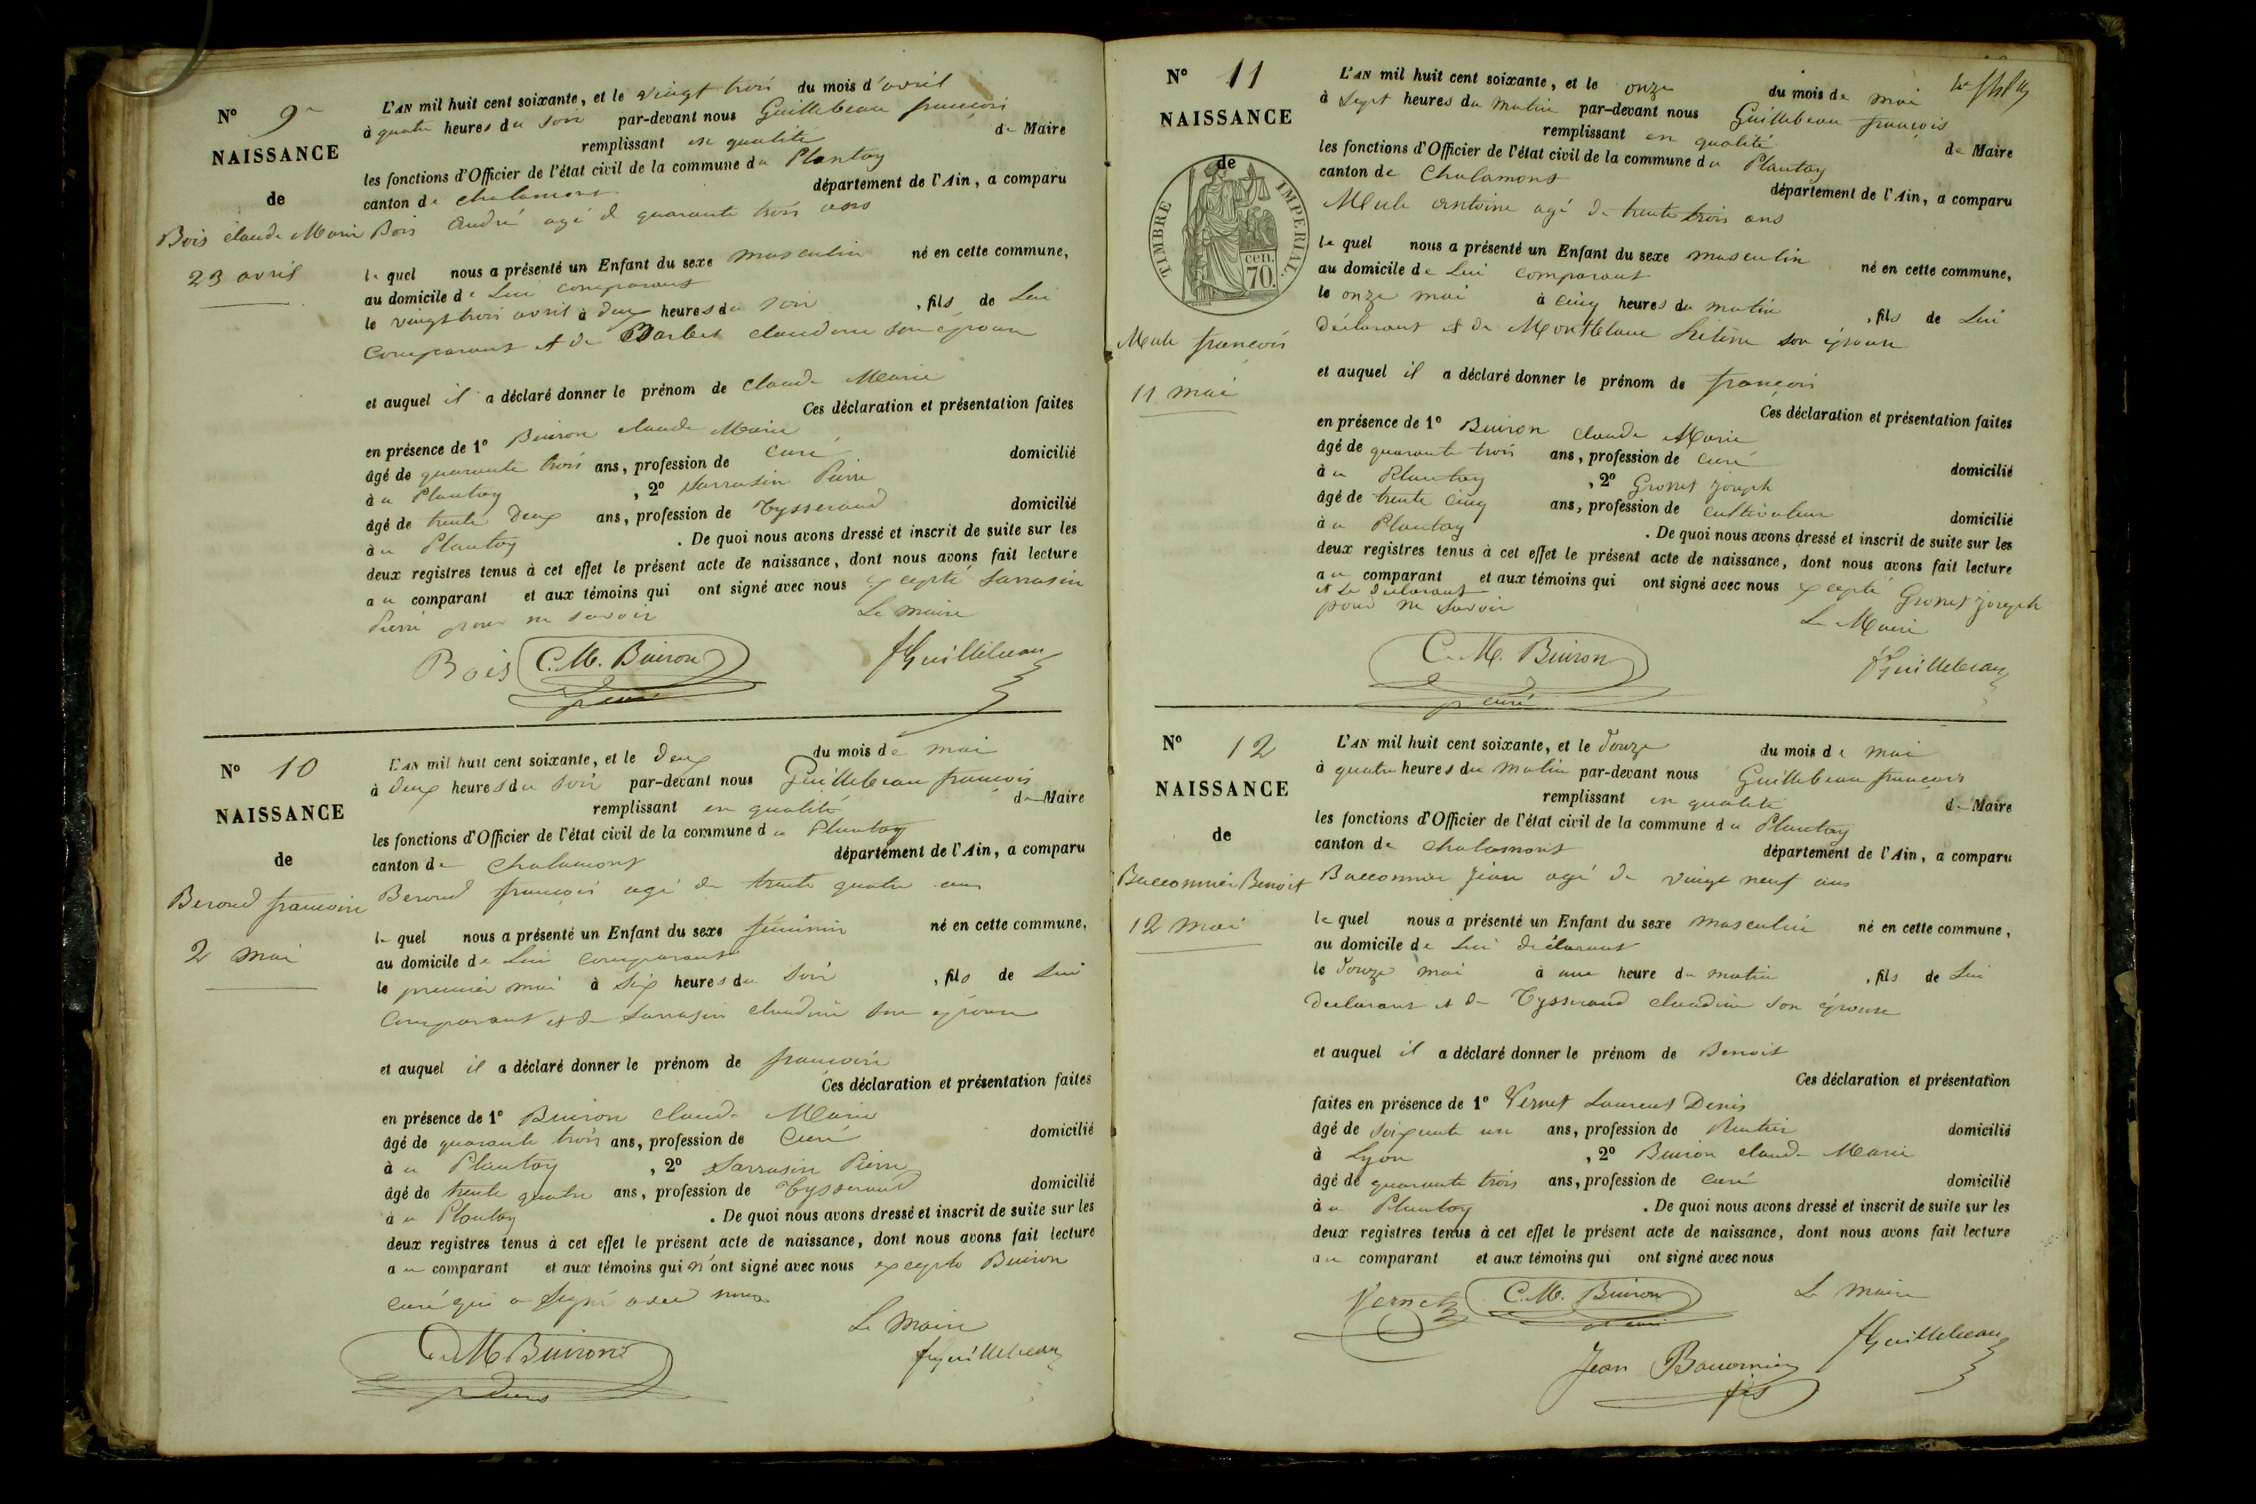 N° 9
NAISSANCE
de
Bois claude Marie
23 avril
L'AN mil huit cent soixante, et le vingt trois du mois d'avril
à quatre heures du soir par-devant nous Guillebeau françois
remplissant en qualité de Maire
les fonctions d'Officier de l'état civil de la commune du Plantay
canton de chalamont département de l'Ain, a comparu
Bois André agé de quarante trois ans
le quel nous a présenté un Enfant du sexe masculin né en cette commune,
au domicile de Lui comparant
le vingt trois avril à deux heures du soir, fils de Lui
comparant et de Barbet claudine son épouse
et auquel il a déclaré donner le prénom de claude Marie
Ces déclaration et présentation faites
en présence de 1° Buiron claude Marie
âgé de quarante trois ans, profession de Curé domicilié
à u Plantay, 2° Sarrasin Pierre
âgé de trente deux ans, profession de Tysserand domicilié
à u Plantay. De quoi nous avons dressé et inscrit de suite sur les
deux registres tenus à cet effet le présent acte de naissance, dont nous avons fait lecture
au comparant et aux témoins qui ont signé avec nous excepté Sarrasin
Pierre pour ne savoir Le maire
Bois C. M. Buiron fGuillebeau
curé
N° 10
NAISSANCE
de
Beroud francoise
2 mai
L'AN mil huit cent soixante, et le deux du mois de mai
à deux heures du soir par-devant nous Guillebeau françois
remplissant en qualité de Maire
les fonctions d'Officier de l'état civil de la commune du Plantay
canton de chalamont département de l'Ain, a comparu
Beroud françois agé de trente quatre ans
le quel nous a présenté un Enfant du sexe féminin né en cette commune,
au domicile de Lui comparant
le premier mai à Six heures du soir, fils de Lui
comparant et de Sarrasin claudine son épouse
et auquel il a déclaré donner le prénom de francoise
Ces déclaration et présentation faites
en présence de 1° Buiron claude Marie
âgé de quarante trois ans, profession de Curé domicilié
à u Plantay, 2° Sarrasin Pierre
âgé de trente quatre ans, profession de Tysserand domicilié
à u Plantay. De quoi nous avons dressé et inscrit de suite sur les
deux registres tenus à cet effet le présent acte de naissance, dont nous avons fait lecture
au comparant et aux témoins qui n'ont signé avec nous excepté Buiron
curé qui a signé avec nous
Le Maire
C. M. Buiron fGuillebeau
N° 11
NAISSANCE
de
TIMBRE IMPERIAL.
cen.
70.
Merle françois
11 mai
L'AN mil huit cent soixante, et le onze du mois de mai
à Sept heures du matin par-devant nous Guillebeau françois
remplissant en qualité de Maire
les fonctions d'Officier de l'état civil de la commune du Plantay
canton de Chalamont département de l'Ain, a comparu
Merle Antoine agé de trente trois ans
le quel nous a présenté un Enfant du sexe masculin né en cette commune,
au domicile de Lui comparant
le onze mai à cinq heures du matin, fils de Lui
déclarant et de son épouse
et auquel il a déclaré donner le prénom de françois
Ces déclaration et présentation faites
en présence de 1° Buiron claude Marie
âgé de quarante trois ans, profession de curé domicilié
à u Plantay, 2° Gronet joseph
âgé de trente cinq ans, profession de cultivateur domicilié
à u Plantay. De quoi nous avons dressé et inscrit de suite sur les
deux registres tenus à cet effet le présent acte de naissance, dont nous avons fait lecture
au comparant et aux témoins qui ont signé avec nous excepté Gronet joseph
et le déclarant
pour ne savoir Le Maire
C. M. Buiron fGuillebeau
curé
N° 12
NAISSANCE
de
Bacconnier Benoit
12 mai
L'AN mil huit cent soixante, et le douze du mois de mai
à quatre heures du matin par-devant nous Guillebeau françois
remplissant en qualité de Maire
les fonctions d'Officier de l'état civil de la commune du Plantay
canton de chalamont département de l'Ain, a comparu
Bacconnier Jean agé de vingt neuf ans
le quel nous a présenté un Enfant du sexe masculin né en cette commune,
au domicile de Lui déclarant
le douze mai à une heure du matin, fils de Lui
déclarant et de Tysserand claudine son épouse
et auquel il a déclaré donner le prénom de Benoit
Ces déclaration et présentation
faites en présence de 1° Vernet Laurent Denis
âgé de soixante un ans, profession de Rentier domicilié
à Lyon, 2° Buiron claude Marie
âgé de quarante trois ans, profession de curé domicilié
à u Plantay. De quoi nous avons dressé et inscrit de suite sur les
deux registres tenus à cet effet le présent acte de naissance, dont nous avons fait lecture
au comparant et aux témoins qui ont signé avec nous
Vernet C. M. Buiron Le maire
fGuillebeau
Jean Baconnier
fils